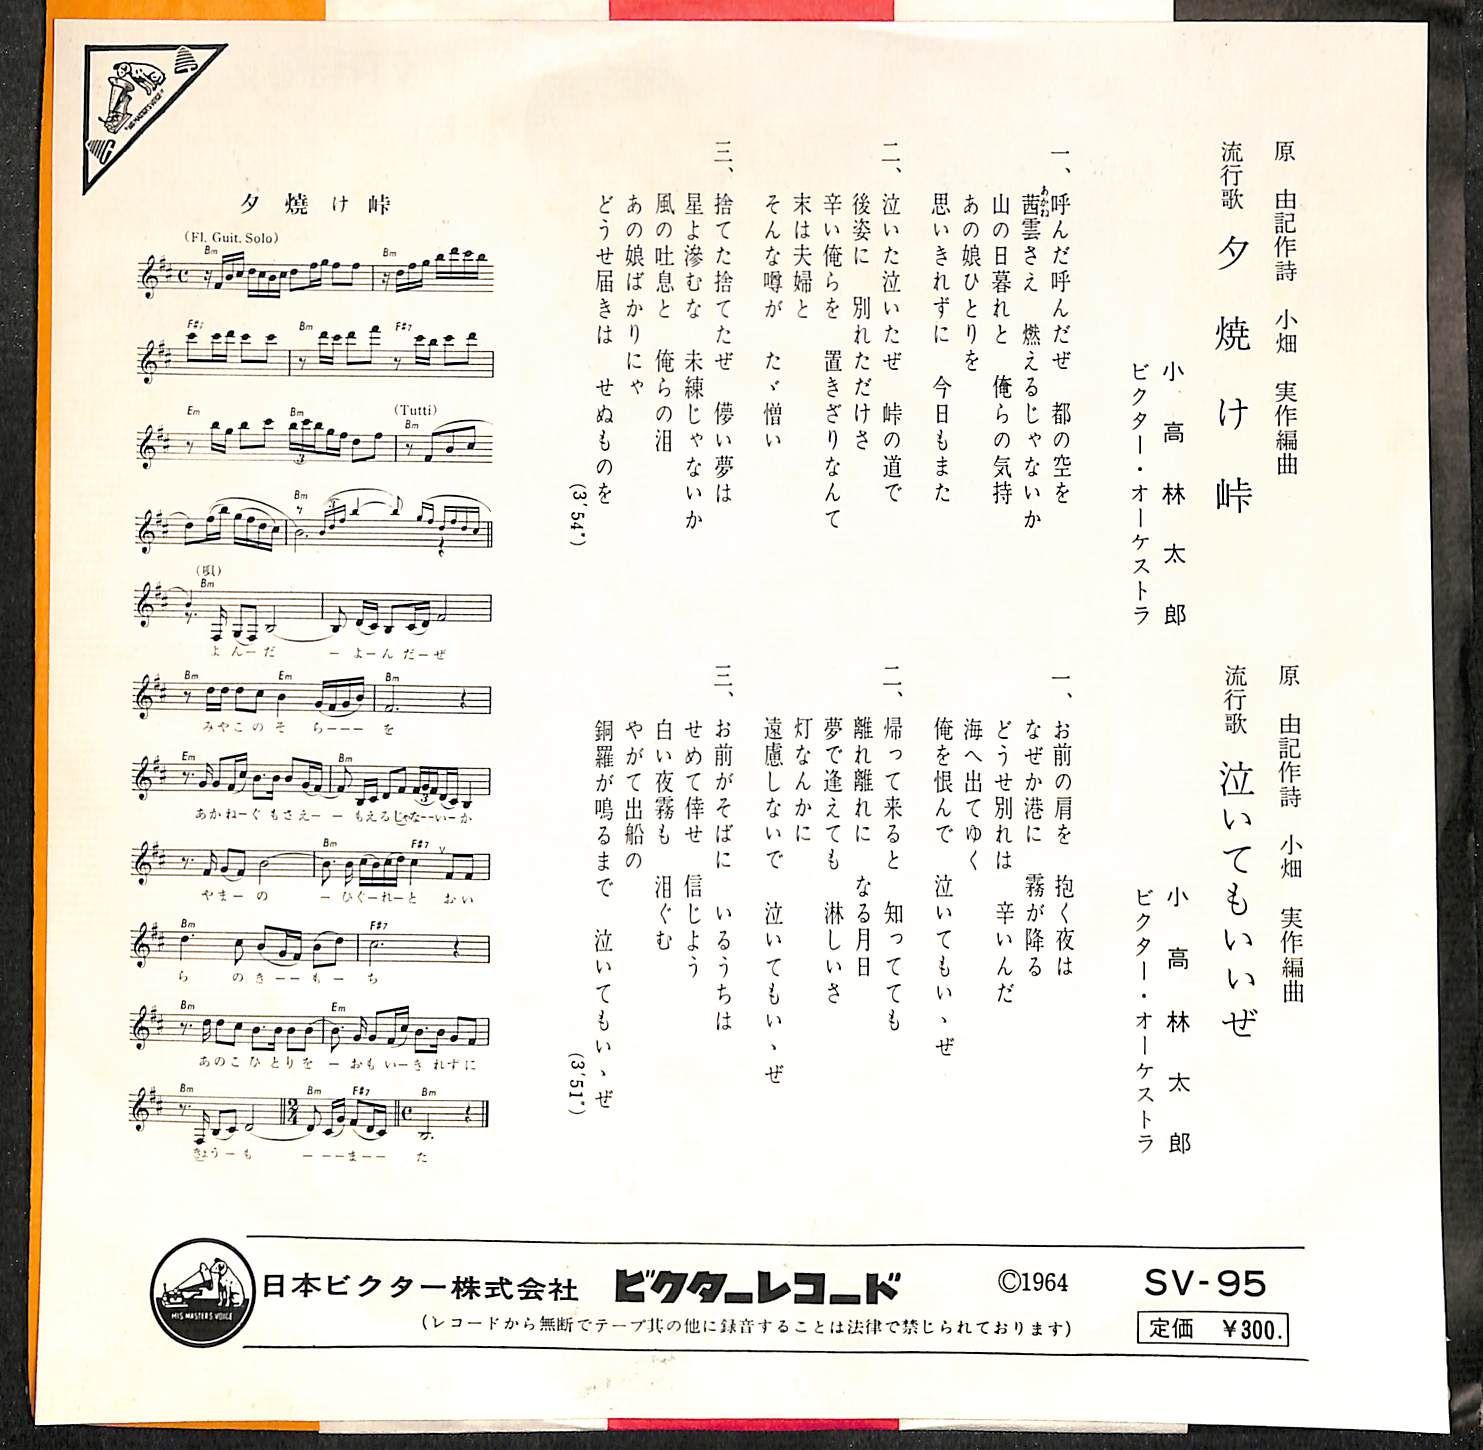 原 由記作詩 小畑 実作編曲
流行歌 夕焼け峠
小高林太郎
ビクター・オーケストラ
一、呼んだ呼んだぜ 都の空を
茜雲さえ 燃えるじゃないか
あかね
山の日暮れと 俺らの気持
あの娘ひとりを
思いきれずに 今日もまた
二、泣いた泣いたぜ 峠の道で
後姿に 別れただけさ
辛い俺らを 置きざりなんて
末は夫婦と
そんな噂が たゞ憎い
三、捨てた捨てたぜ 儚い夢は
星よ滲むな 未練じゃないか
風の吐息と 俺らの泪
あの娘ばかりにゃ
どうせ届きは せぬものを
(3'54")
原 由記作詩 小畑 実作編曲
流行歌 泣いてもいいぜ
小高林太郎
ビクター・オーケストラ
一、お前の肩を 抱く夜は
なぜか港に 霧が降る
どうせ別れは 辛いんだ
海へ出てゆく
俺を恨んで 泣いてもいゝぜ
二、帰って来ると 知ってても
離れ離れに なる月日
夢で逢えても 淋しいさ
灯なんかに
遠慮しないで 泣いてもいゝぜ
三、お前がそばに いるうちは
せめて倖せ 信じよう
白い夜霧も 泪ぐむ
やがて出船の
銅羅が鳴るまで 泣いてもいゝぜ
(3'51")
夕燒け峠
(Fl. Guit. Solo)
Bm Bm
F#7 Bm F#7
Em Bm (Tutti) Bm
Bm
(唄)
Bm
よんーだ ーよーんだーぜ
Bm Em Bm
みやこのそらーーーを
Em Bm
あかねーぐもさえーーもえるじゃなーーいーか
Bm F#7
やまーの ーひぐーれーと おい
Bm F#7
らのきーーもーち
Bm Em
あのこひとりをーおもいーきれずに
Bm Bm F#7 Bm
きょうーも ーーーまーーた
HIS MASTER'S VOICE
日本ビクター株式会社 ビクターレコード ©1964 SV-95
(レコードから無断でテープ其の他に録音することは法律で禁じられております)
定価 ¥300.